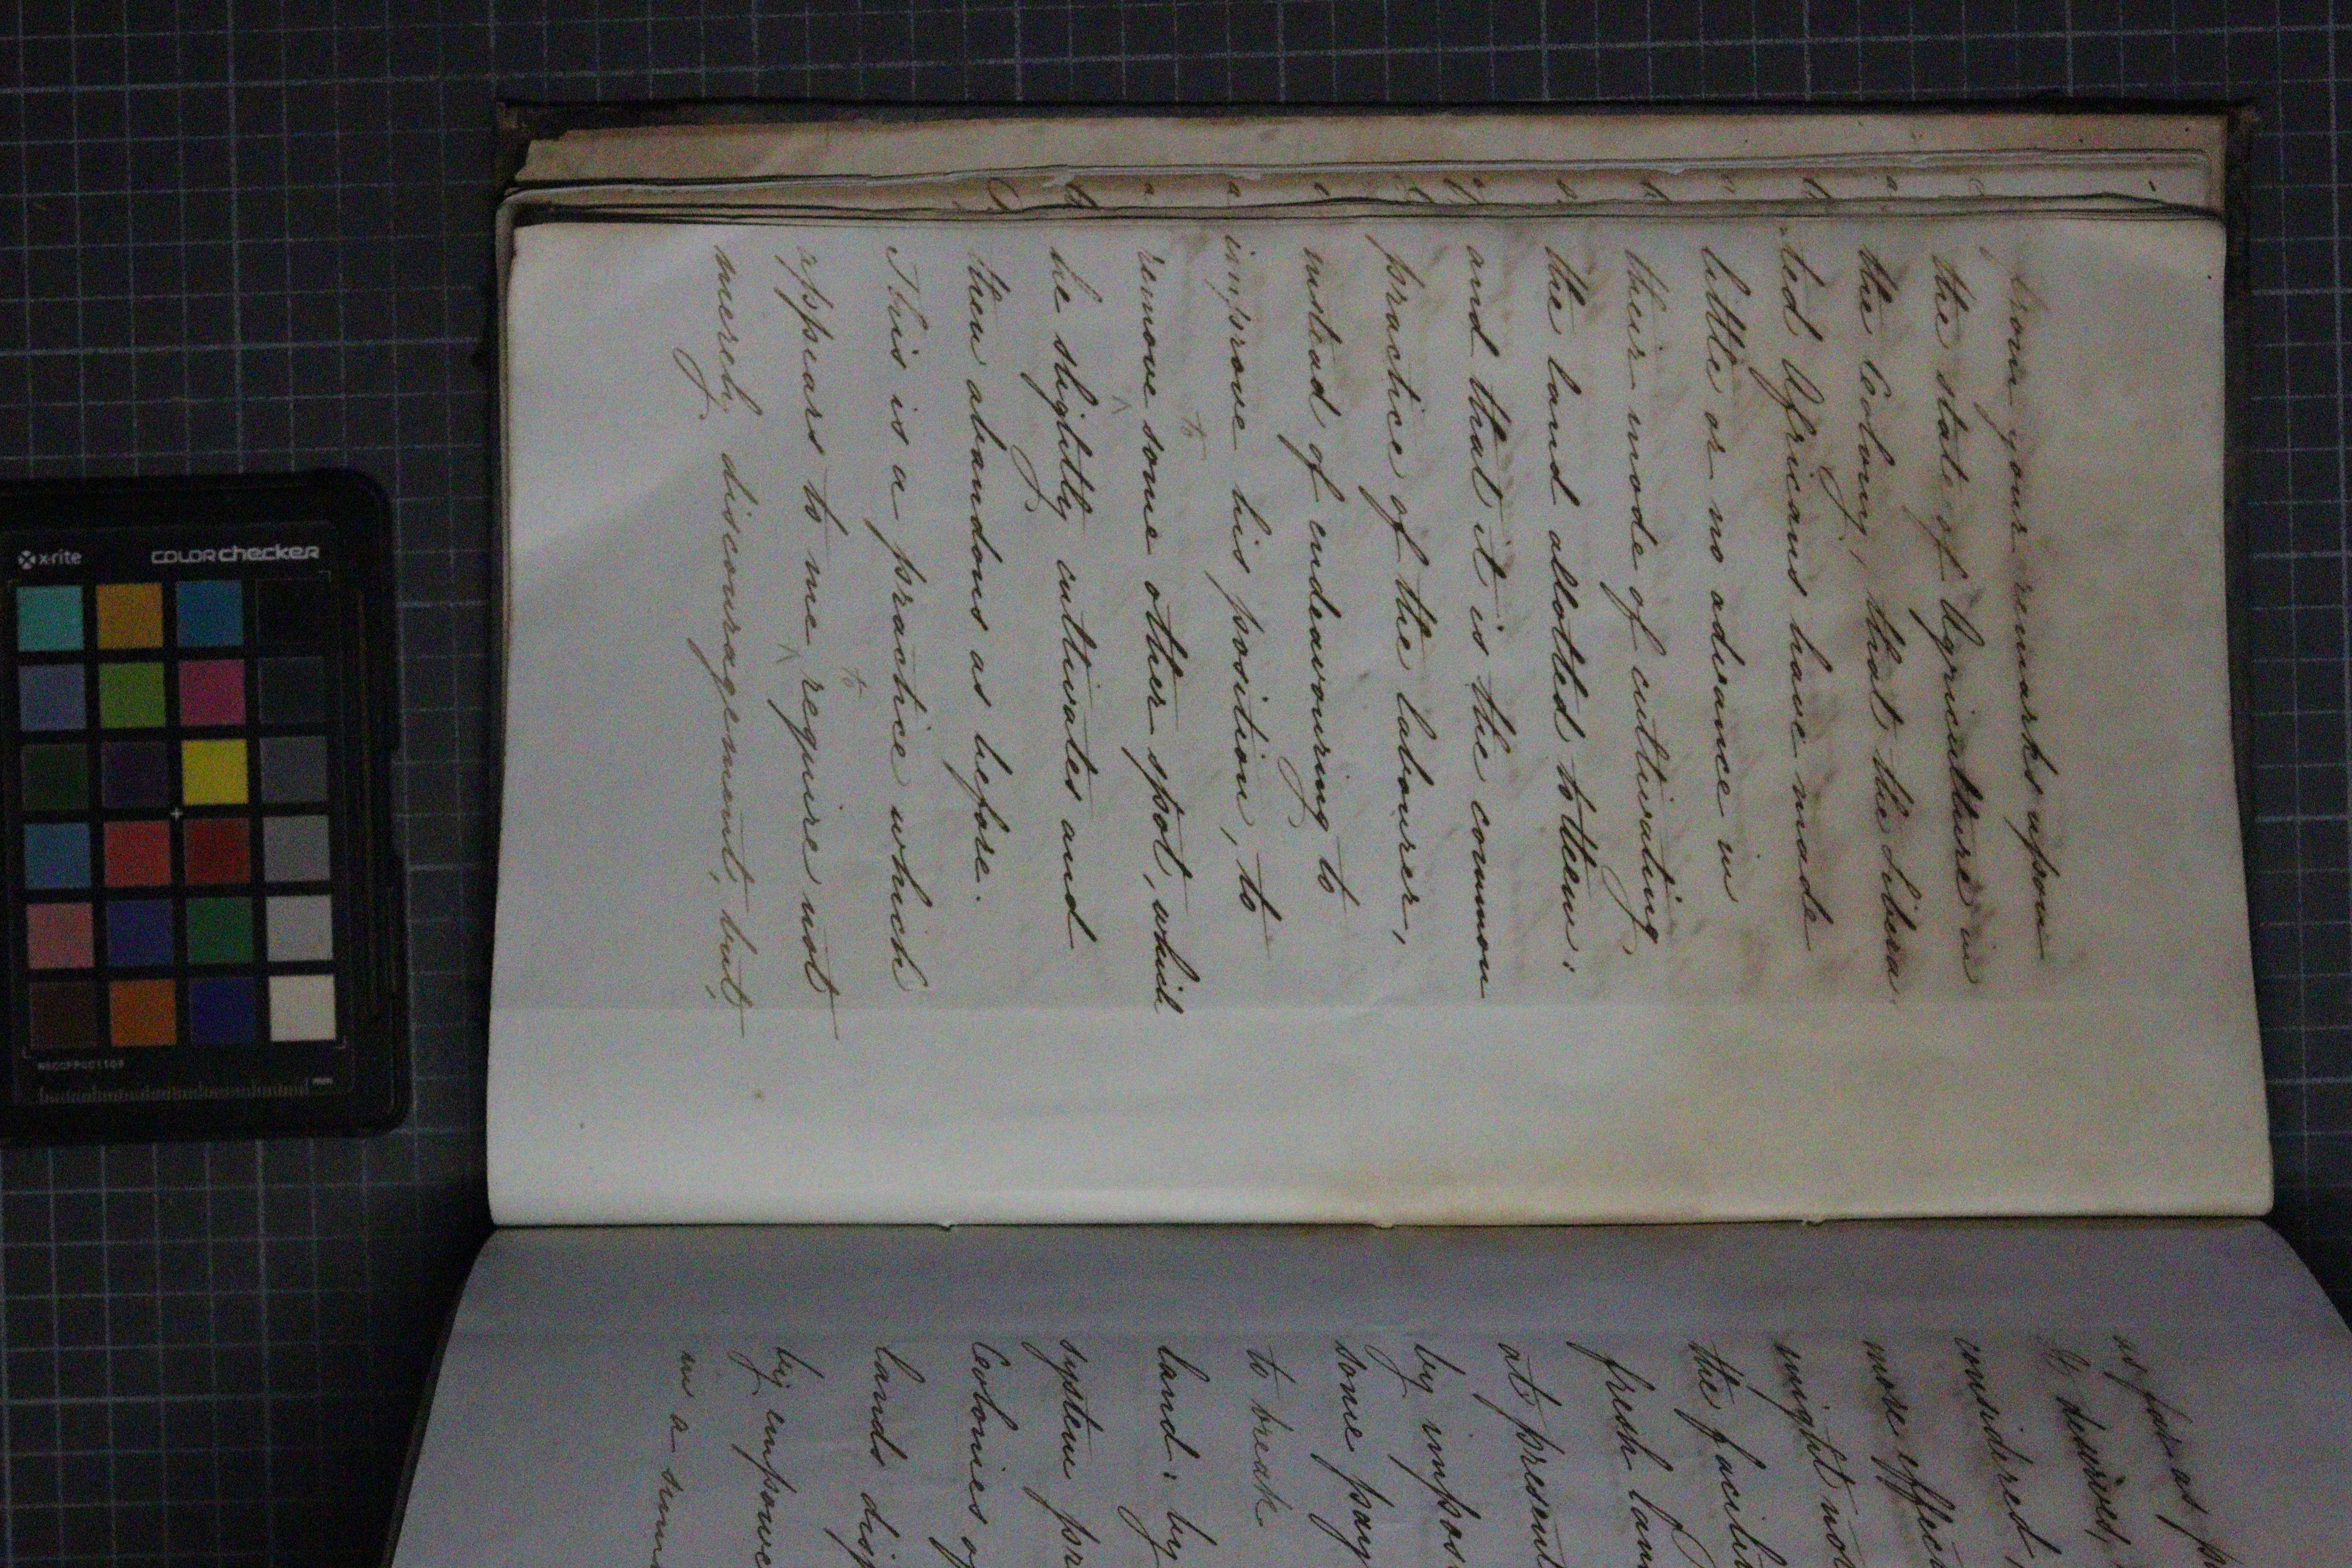 from your remarks upon
the state of Agriculture in
the Colony, that the Libera
ted Africans have made
little or no advance in
their mode of cultivating
the land allotted to them:
and that it is the common
practice of the labourer,
instead of endeavouring to
improve his position, to
to
remove some other spot, which
he slightly cultivates and
then abandons as before.
This is a practice which
appears to me require not
to
merely discouragement, but,
as far as p
it deserves,
considered,
more effec
might not
the facilit
fresh lan
at present
by impos
some pay
to break
land: by
system pr
Colonies of
lands disp
by empowe
in a summ
x-rite
COLORchecker
mm